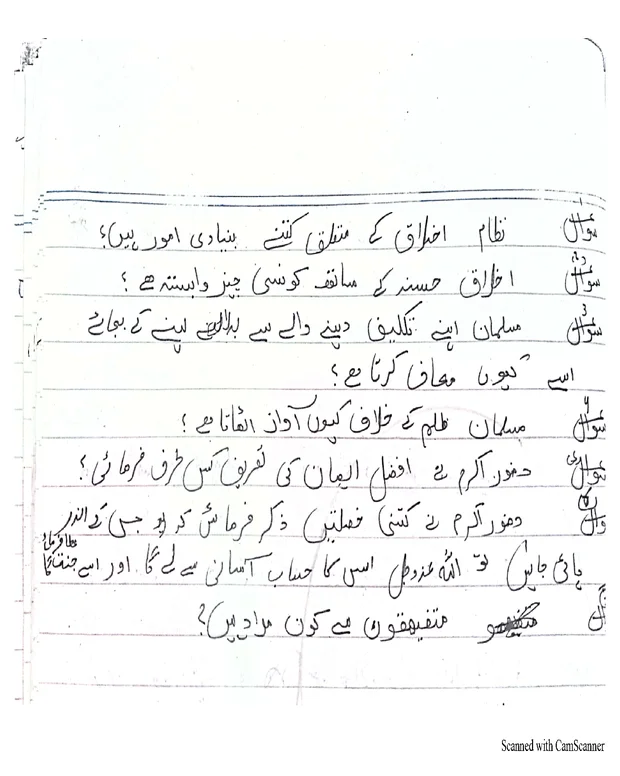 سوال نظام اخلاق کے متعلق کتنے بنیادی امور ہیں؟
سوال اخلاق حسنہ کے ساتھ کونسی چیز وابستہ ھے ؟
سوال 3 مسلمان اپنے تکلیف دینے والے سے بدلہ لینے کے بجائے
اسے کیوں معاف کرتا ھے ؟
سوال مسلمان ظلم کے خلاف کیوں آواز اٹھاتا ھے ؟
سوال حضور اکرم نے افضل ایمان کی تعریف کس طرف فرمائی ؟
سوال حضور اکرم نے کتنی خصلتیں ذکر فرمائیں کہ جس کے اندر
پائی جائیں تو اللہ عزوجل اس کا حساب آسانی سے لے گا اور اسے جنت عطا فرمائے گا
متفیھقون سے کون مراد ہیں؟
Scanned with CamScanner